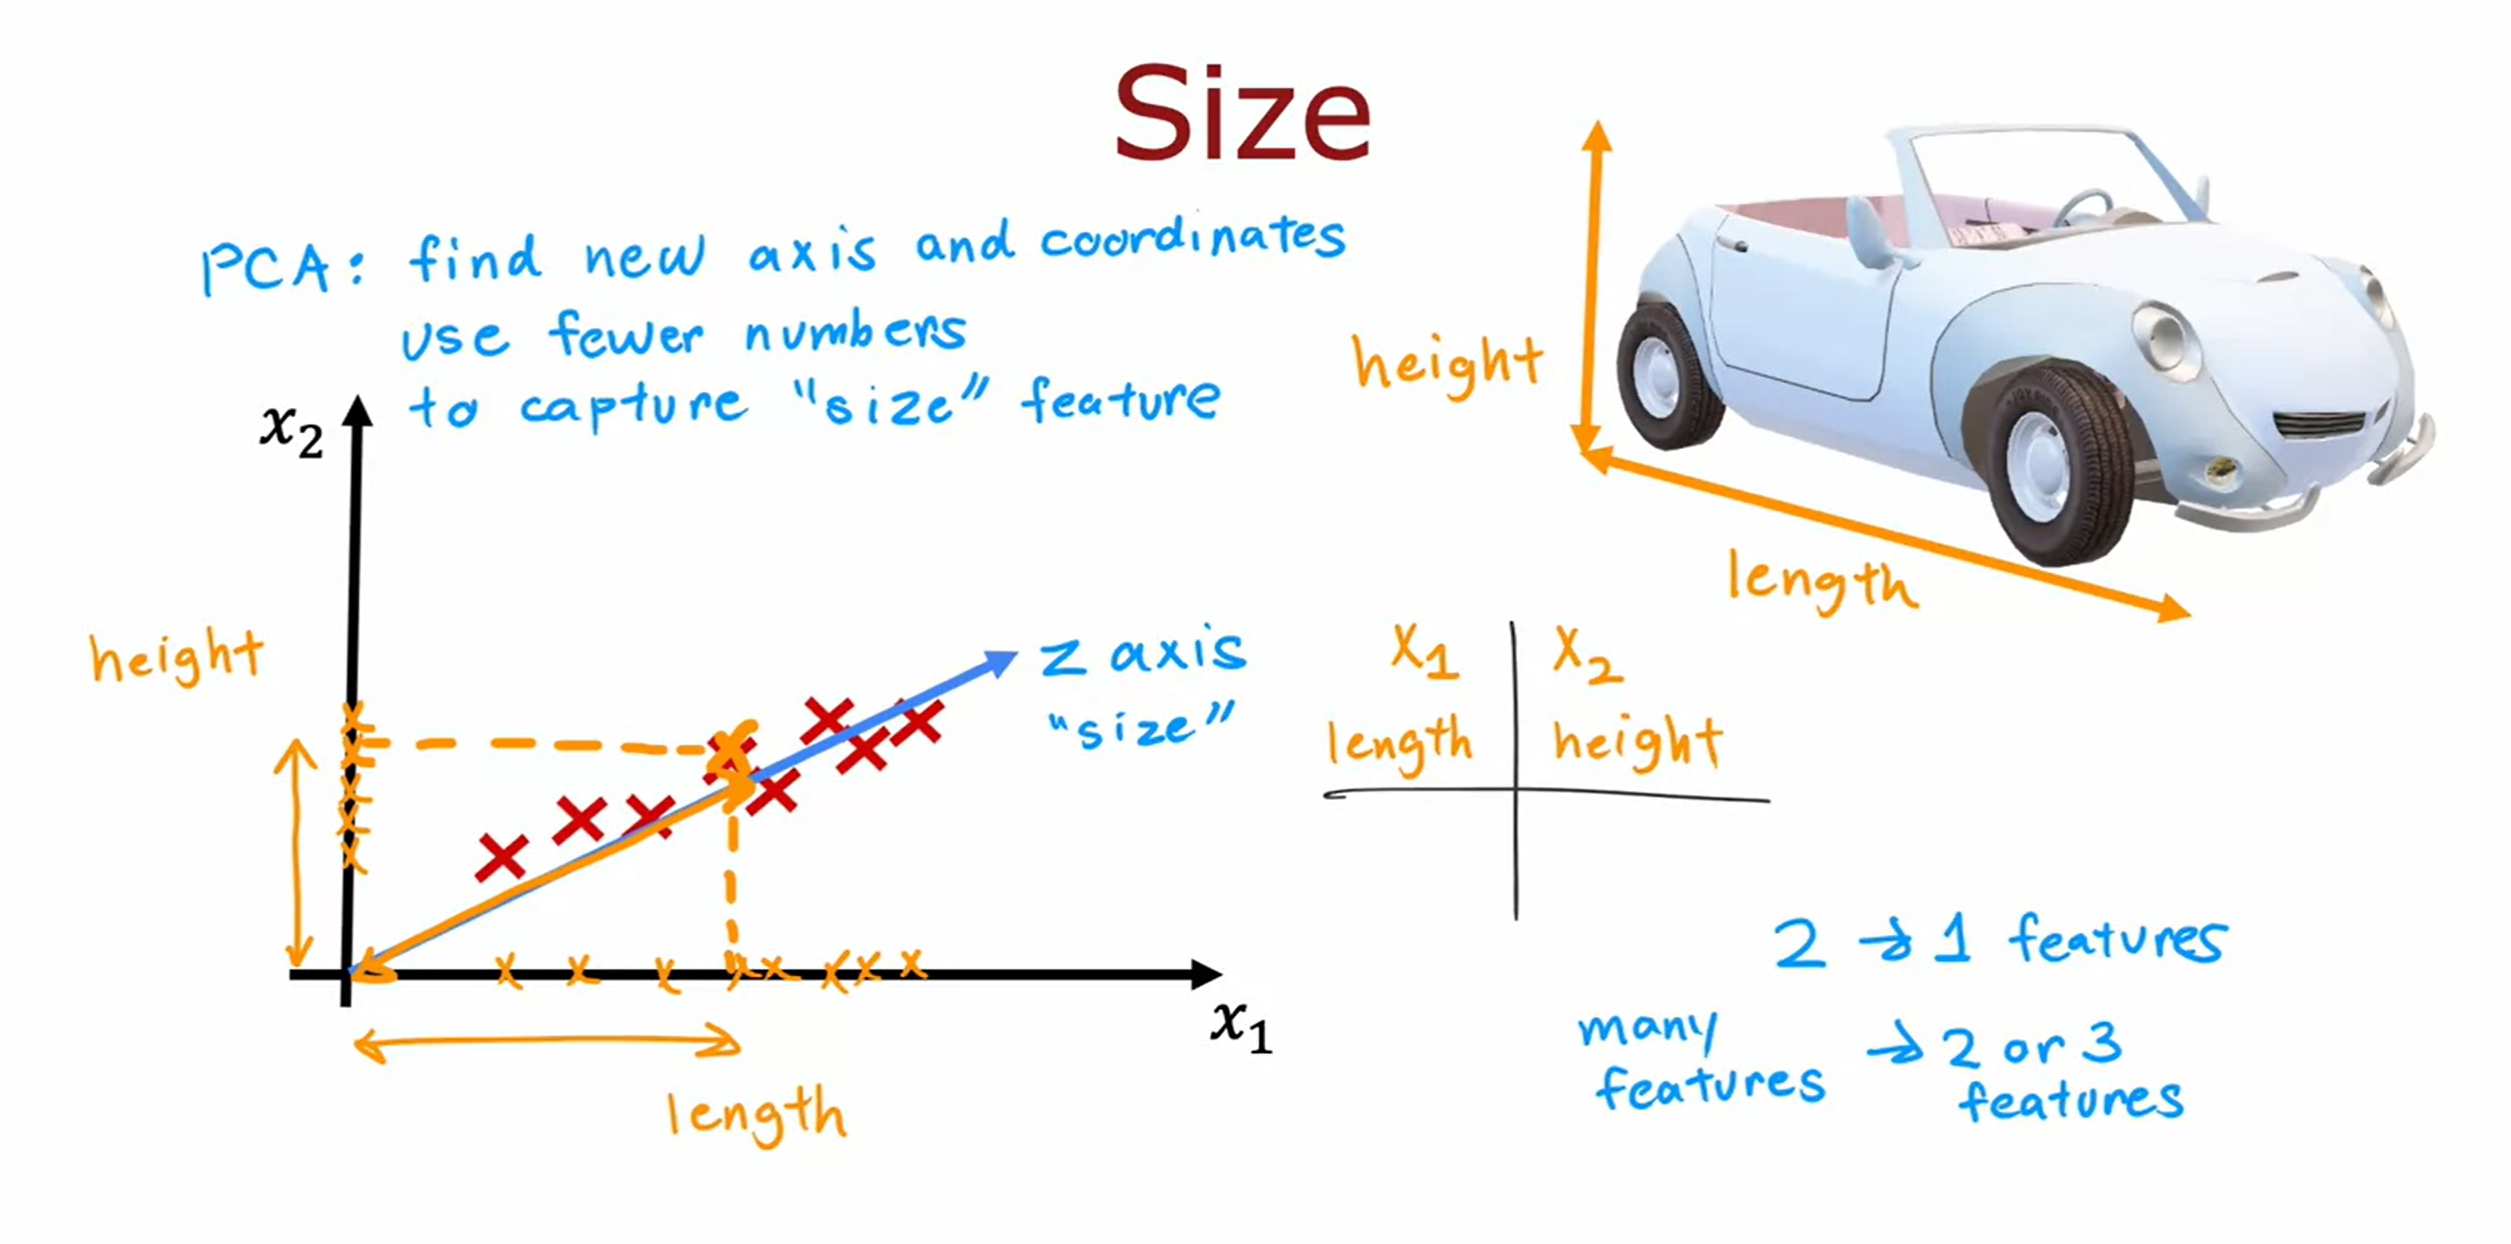 Size
PCA: find new axis and coordinates
use fewer numbers
to capture "size" feature
height
length
x₂
height
z axis
"size"
x₁
length
X₁ X₂
length height
2 → 1 features
many features → 2 or 3 features